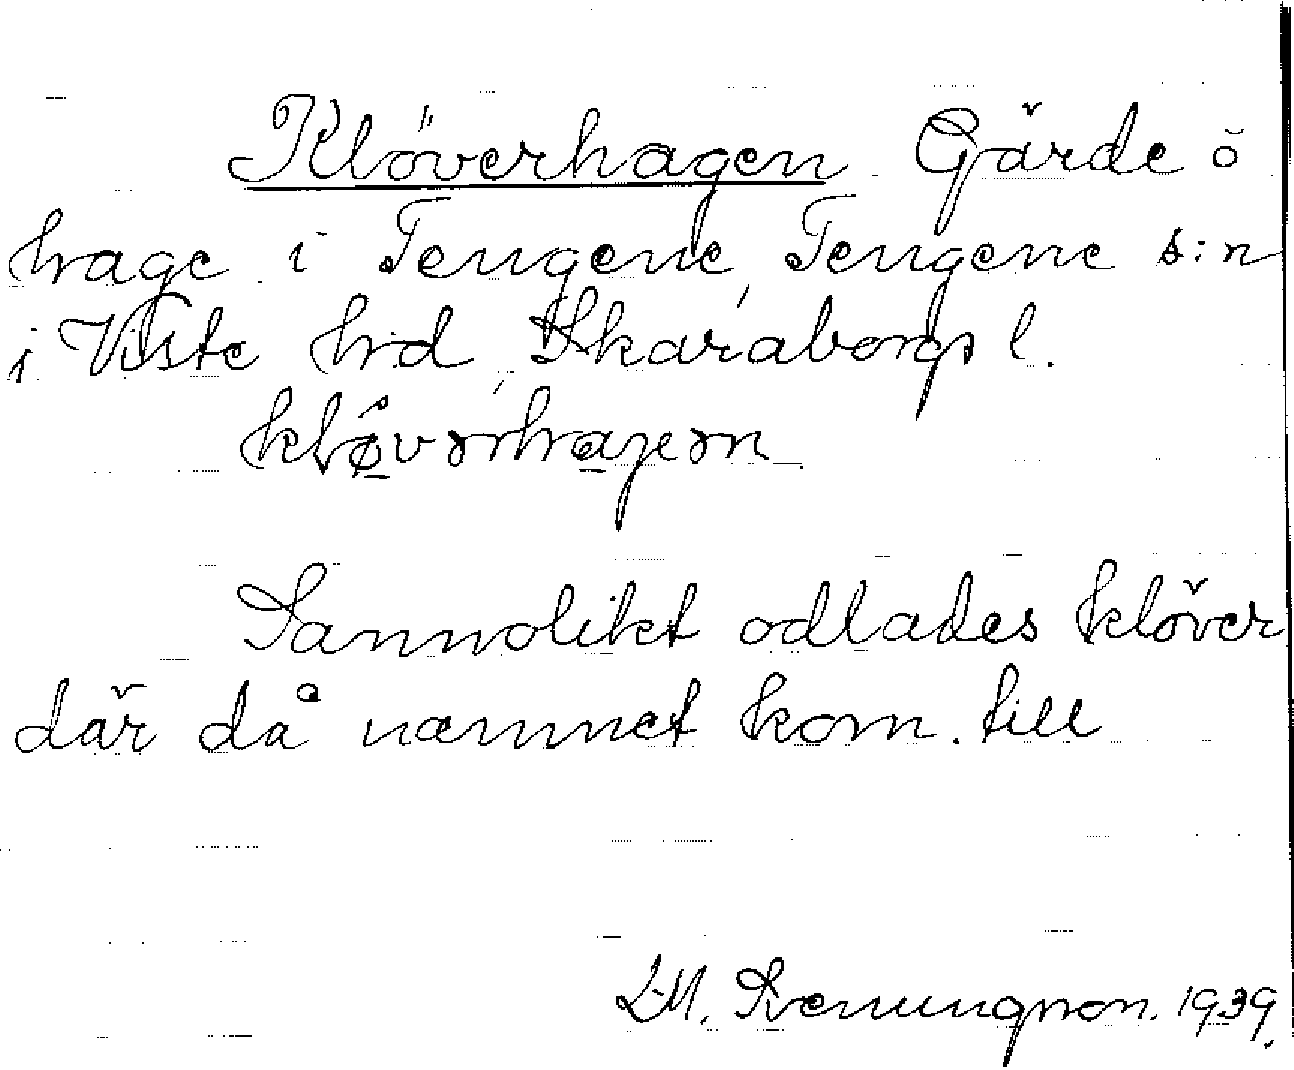 Klöverhagen Gärde ŏ
hage i Tengene, Tengene s:n
i Viste hd, Skaraborgs l.
Sannolikt odlades klöver
där då namnet kom till
L.M. Svenungson. 1939.